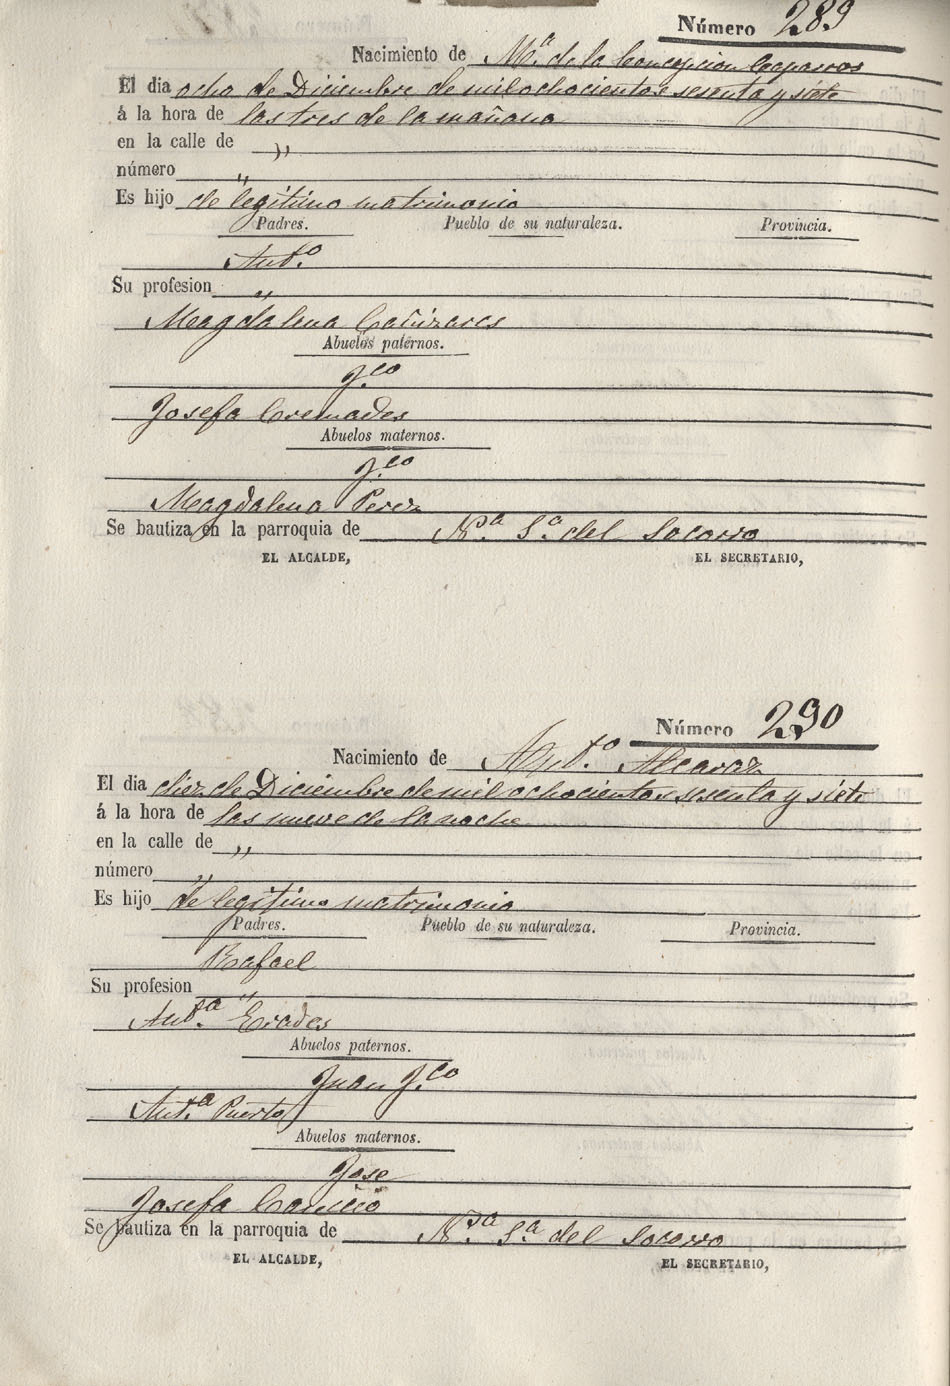 Número 289
Nacimiento de Mª. de la Concepcion Ceparros
El dia ocho de Diciembre de mil ochocientos sesenta y siete
á la hora de las tres de la mañana
en la calle de „
número „
Es hijo de legítimo matrimonio
Padres. Pueblo de su naturaleza. Provincia.
Antº.
Su profesion „
Magdalena Cañizares
Abuelos paternos.
Fco
Josefa Cremades
Abuelos maternos.
Fco
Magdalena Perez
Se bautiza en la parroquia de Nª. Sª. del Socorro
EL ALCALDE, EL SECRETARIO,
Número 290
Nacimiento de Antº. Alcaraz
El dia diez de Diciembre de mil ochocientos sesenta y siete
á la hora de las nueve de la noche
en la calle de „
número „
Es hijo de legítimo matrimonio
Padres. Pueblo de su naturaleza. Provincia.
Rafael
Su profesion „
Antª. Erades
Abuelos paternos.
Juan Fco
Antª. Puerto
Abuelos maternos.
Jose
Josefa
Se bautiza en la parroquia de Nª. Sª. del Socorro
EL ALCALDE, EL SECRETARIO,